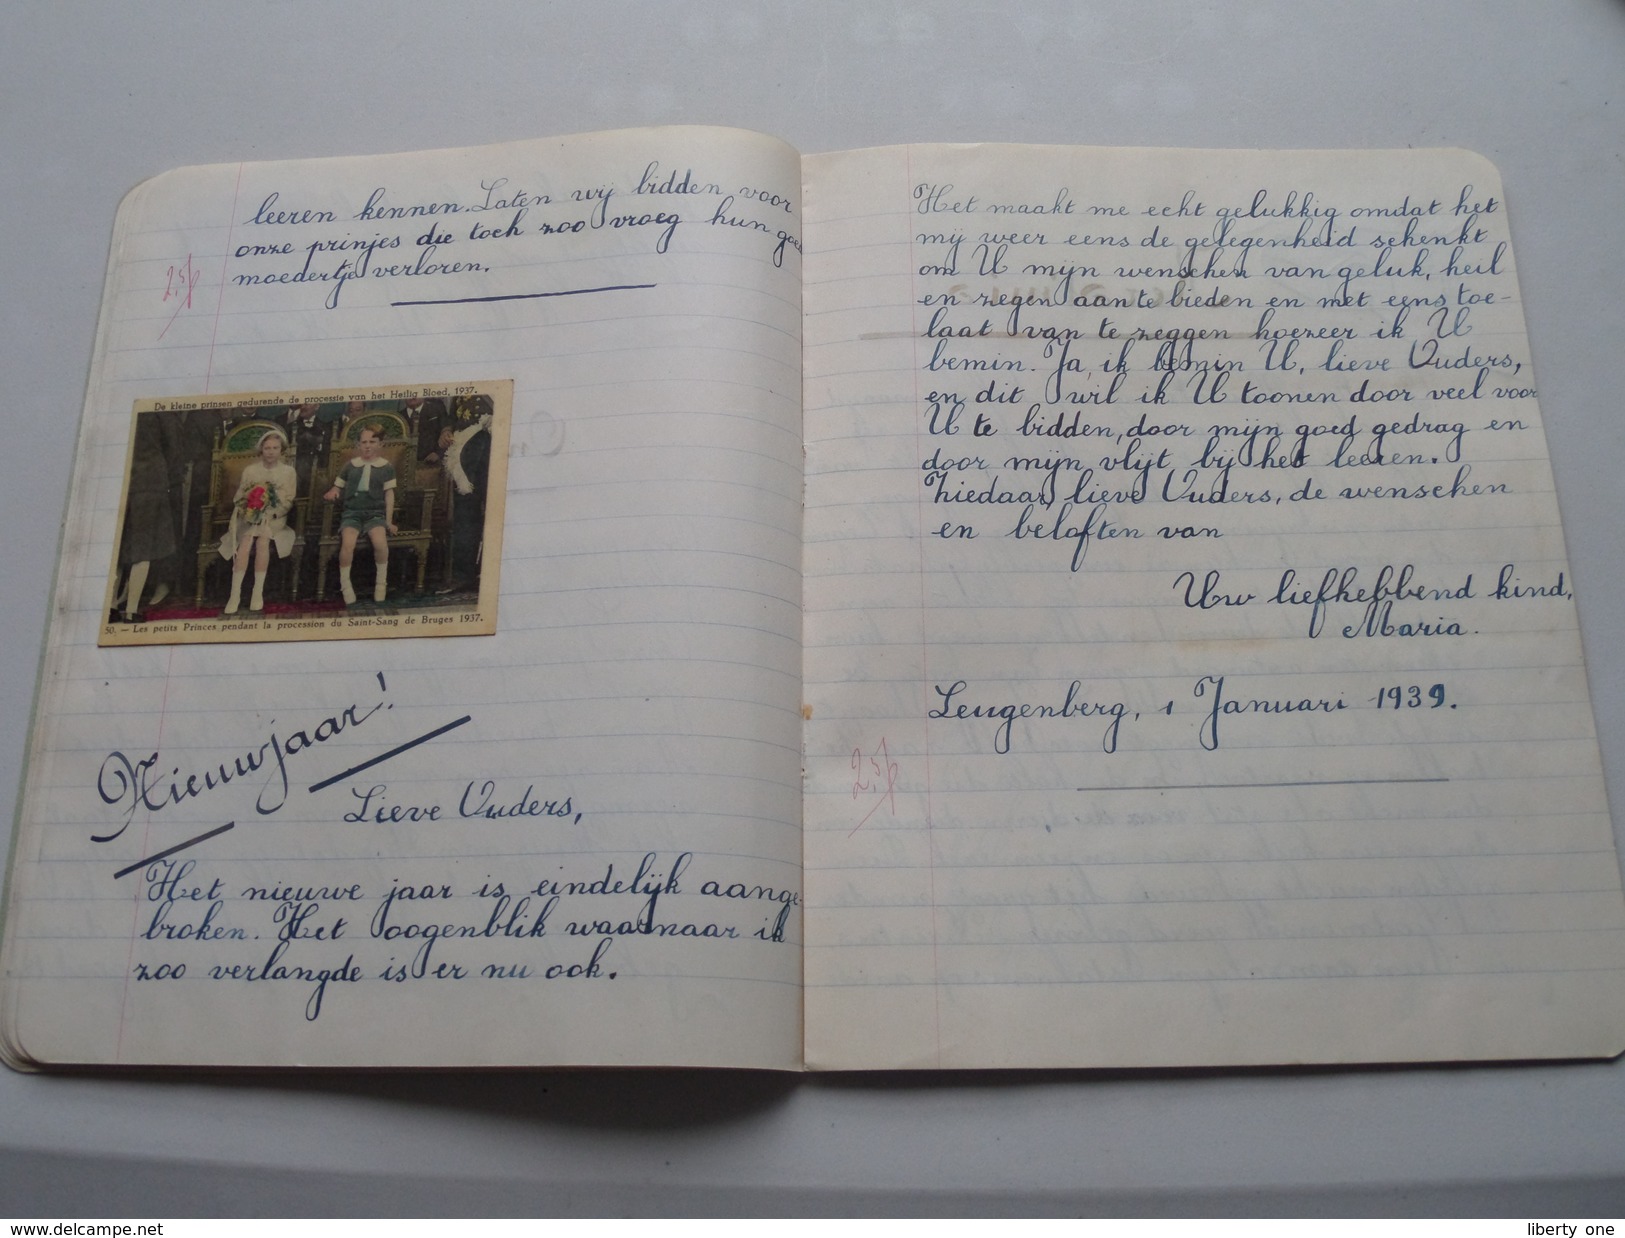 leeren kennen. Laten wij bidden voor
onze prinjes die toch zoo vroeg hun goed
moedertje verloren.
De kleine prinsen gedurende de processie van het Heilig Bloed, 1937.
50. — Les petits Princes pendant la procession du Saint-Sang de Bruges 1937.
Nieuwjaar!
Lieve Ouders,
Het nieuwe jaar is eindelijk aange-
broken. Het oogenblik waarnaar ik
zoo verlangde is er nu ook.
Het maakt me echt gelukkig omdat het
mij weer eens de gelegenheid schenkt
om U mijn wenschen van geluk, heil
en zegen aan te bieden en met eens toe-
laat van te zeggen hoezeer ik U
bemin. Ja, ik bemin U, lieve Ouders,
en dit wil ik U toonen door veel voor
U te bidden, door mijn goed gedrag en
door mijn vlijt bij het leeren.
Hiedaar, lieve Ouders, de wenschen
en beloften van
Uw liefhebbend kind,
Maria.
Leugenberg, 1 Januari 1939.
delcampe.net
liberty one